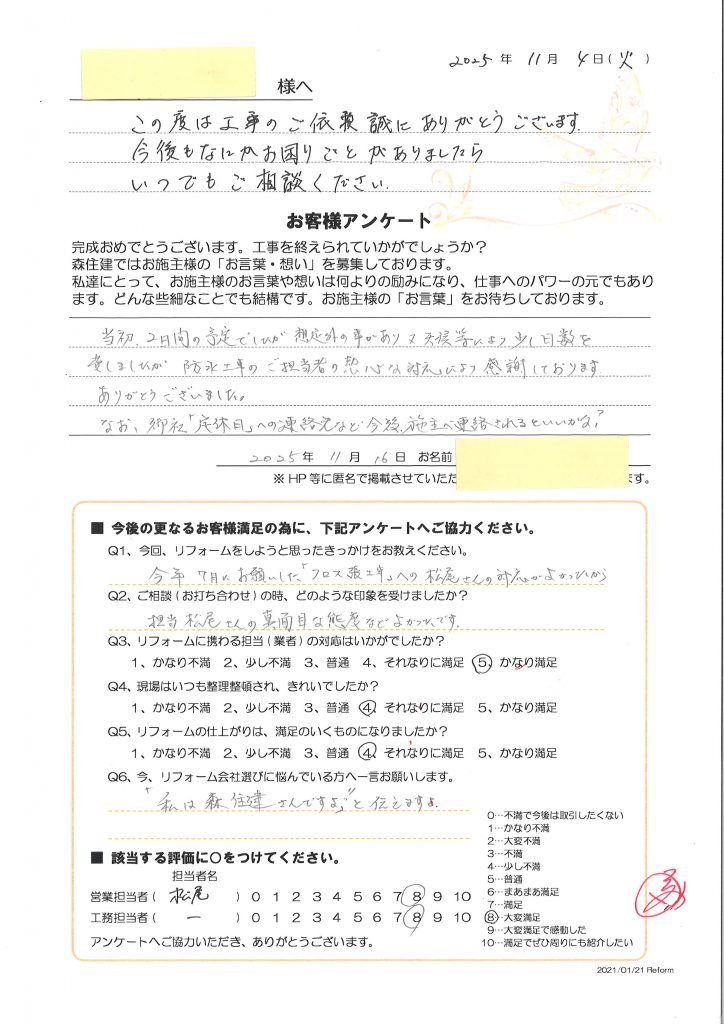 2025年 11月 4日(火)
様へ
この度は工事のご依頼誠にありがとうございます。
今後もなにかお困りごとがありましたら
いつでもご相談ください。
お客様アンケート
完成おめでとうございます。工事を終えられていかがでしょうか？
森住建ではお施主様の「お言葉・想い」を募集しております。
私達にとって、お施主様のお言葉や想いは何よりの励みになり、仕事へのパワーの元でもあり
ます。どんな些細なことでも結構です。お施主様の「お言葉」をお待ちしております。
当初、2日間の予定でしたが想定外の事があり又天候等により少し日数を
要しましたが 防水工事のご担当者の熱心な対応により感謝しております
ありがとうございました。
なお、御社「定休日」への連絡先など今後、施主へ連絡されるといいかな？
2025年 11月 16日 お名前
※HP等に匿名で掲載させていただ ます。
■ 今後の更なるお客様満足の為に、下記アンケートへご協力ください。
Q1、今回、リフォームをしようと思ったきっかけをお教えください。
今年7月にお願いした「クロス張工事」への松尾さんの対応がよかったから
Q2、ご相談（お打ち合わせ）の時、どのような印象を受けましたか？
担当松尾さんの真面目な態度などよかったです。
Q3、リフォームに携わる担当（業者）の対応はいかがでしたか？
1、かなり不満 2、少し不満 3、普通 4、それなりに満足 5、かなり満足
Q4、現場はいつも整理整頓され、きれいでしたか？
1、かなり不満 2、少し不満 3、普通 4、それなりに満足 5、かなり満足
Q5、リフォームの仕上がりは、満足のいくものになりましたか？
1、かなり不満 2、少し不満 3、普通 4、それなりに満足 5、かなり満足
Q6、今、リフォーム会社選びに悩んでいる方へ一言お願いします。
「私は森住建さんですよ。」と伝えますよ。
■ 該当する評価に○をつけてください。
担当者名
営業担当者（ 松尾 ）0 1 2 3 4 5 6 7 8 9 10
工務担当者（ ー ）0 1 2 3 4 5 6 7 8 9 10
アンケートへご協力いただき、ありがとうございます。
0…不満で今後は取引したくない
1…かなり不満
2…大変不満
3…不満
4…少し不満
5…普通
6…まあまあ満足
7…満足
8…大変満足
9…大変満足で感動した
10…満足でぜひ周りにも紹介したい
2021/01/21 Reform